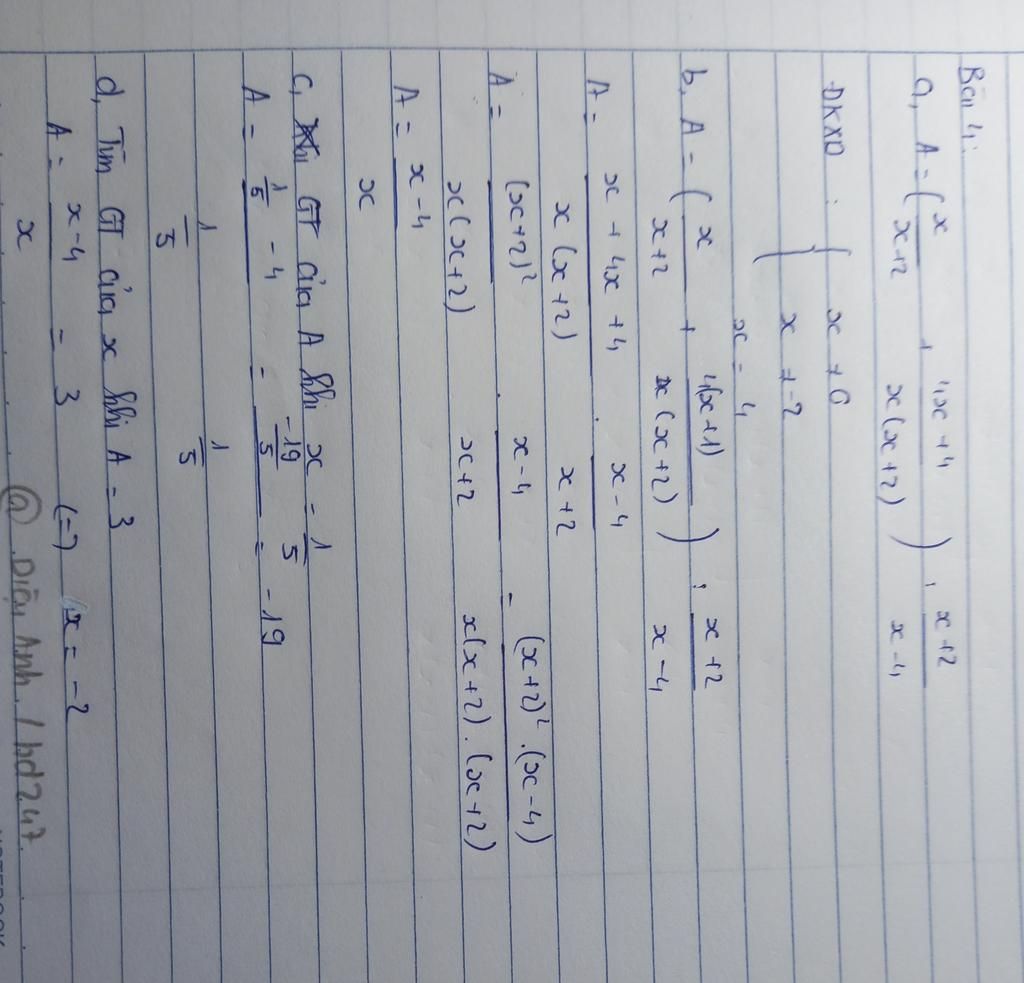 Bài 4:
a, A = ( x/x+2 + 4x+4/x(x+2) ) : x+2/x-4
ĐKXĐ : { x ≠ 0
x ≠ -2
x = 4
b, A = ( x/x+2 + 4(x+1)/x(x+2) ) : x+2/x-4
A = x + 4x + 4/x(x+2) . x-4/x+2
A = (x+2)²/x(x+2) . x-4/x+2 = (x+2)².(x-4)/x(x+2).(x+2)
A = x-4/x
c, GT của A khi x = 1/5
A = 1/5 - 4/1/5 = -19/5/1/5 = -19
d, Tìm GT của x khi A = 3
A = x-4/x = 3 (=) x = -2
@ Diệu Anh / hd247